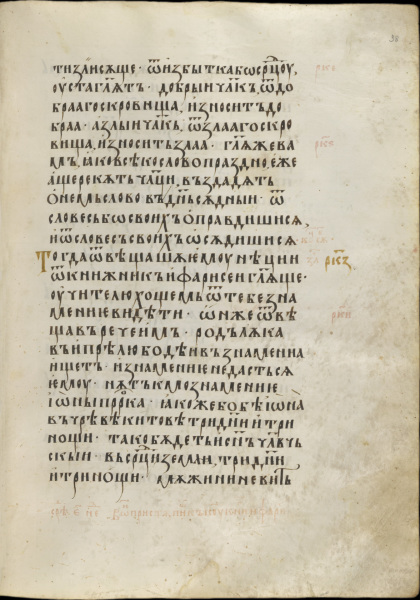 ти зли сѫще · ѿ избытка бо ср҃цоу,
оуста гл҃ѫтъ · добрыи чл҃къ, ѿ до
брааго скровища, износитъ до
браа · а злыи чл҃къ, ѿ злааго скро
вища, износитъ злаа · гл҃ѫ же ва
мъ, ꙗко всѣко слово праздно, еже
аще рекѫтъ чл҃ци, въздадѧтъ
о немь слово въ дн҃ь сѫдныи · ѿ
словесъ бо своихъ оправдишисѧ,
и ѿ словесъ своихъ осѫдишисѧ
Тогда ѿвѣщашѧ емоу нѣции
ѿ книжникъ и фарисеи гл҃ѧще ·
оучителю хощемъ ѿ тебе зна
мение видѣти · ѡн же ѿвѣ
щавъ рече имъ · родъ лѫка
выи прѣлюбодѣи въ знамениа
ищетъ · и знамение не дастъсѧ
емоу · нѫ тъкмо знамение
іѡны пр҃рока · ꙗкоже бо бѣ іѡна
въ чрѣвѣ китовѣ три дн҃и и три
нощи · тако бѫдетъ и сн҃ъ чл҃вчь
скыи · въ ср҃ци земли, три дн҃и
и три нощи · мѫжи ниневить